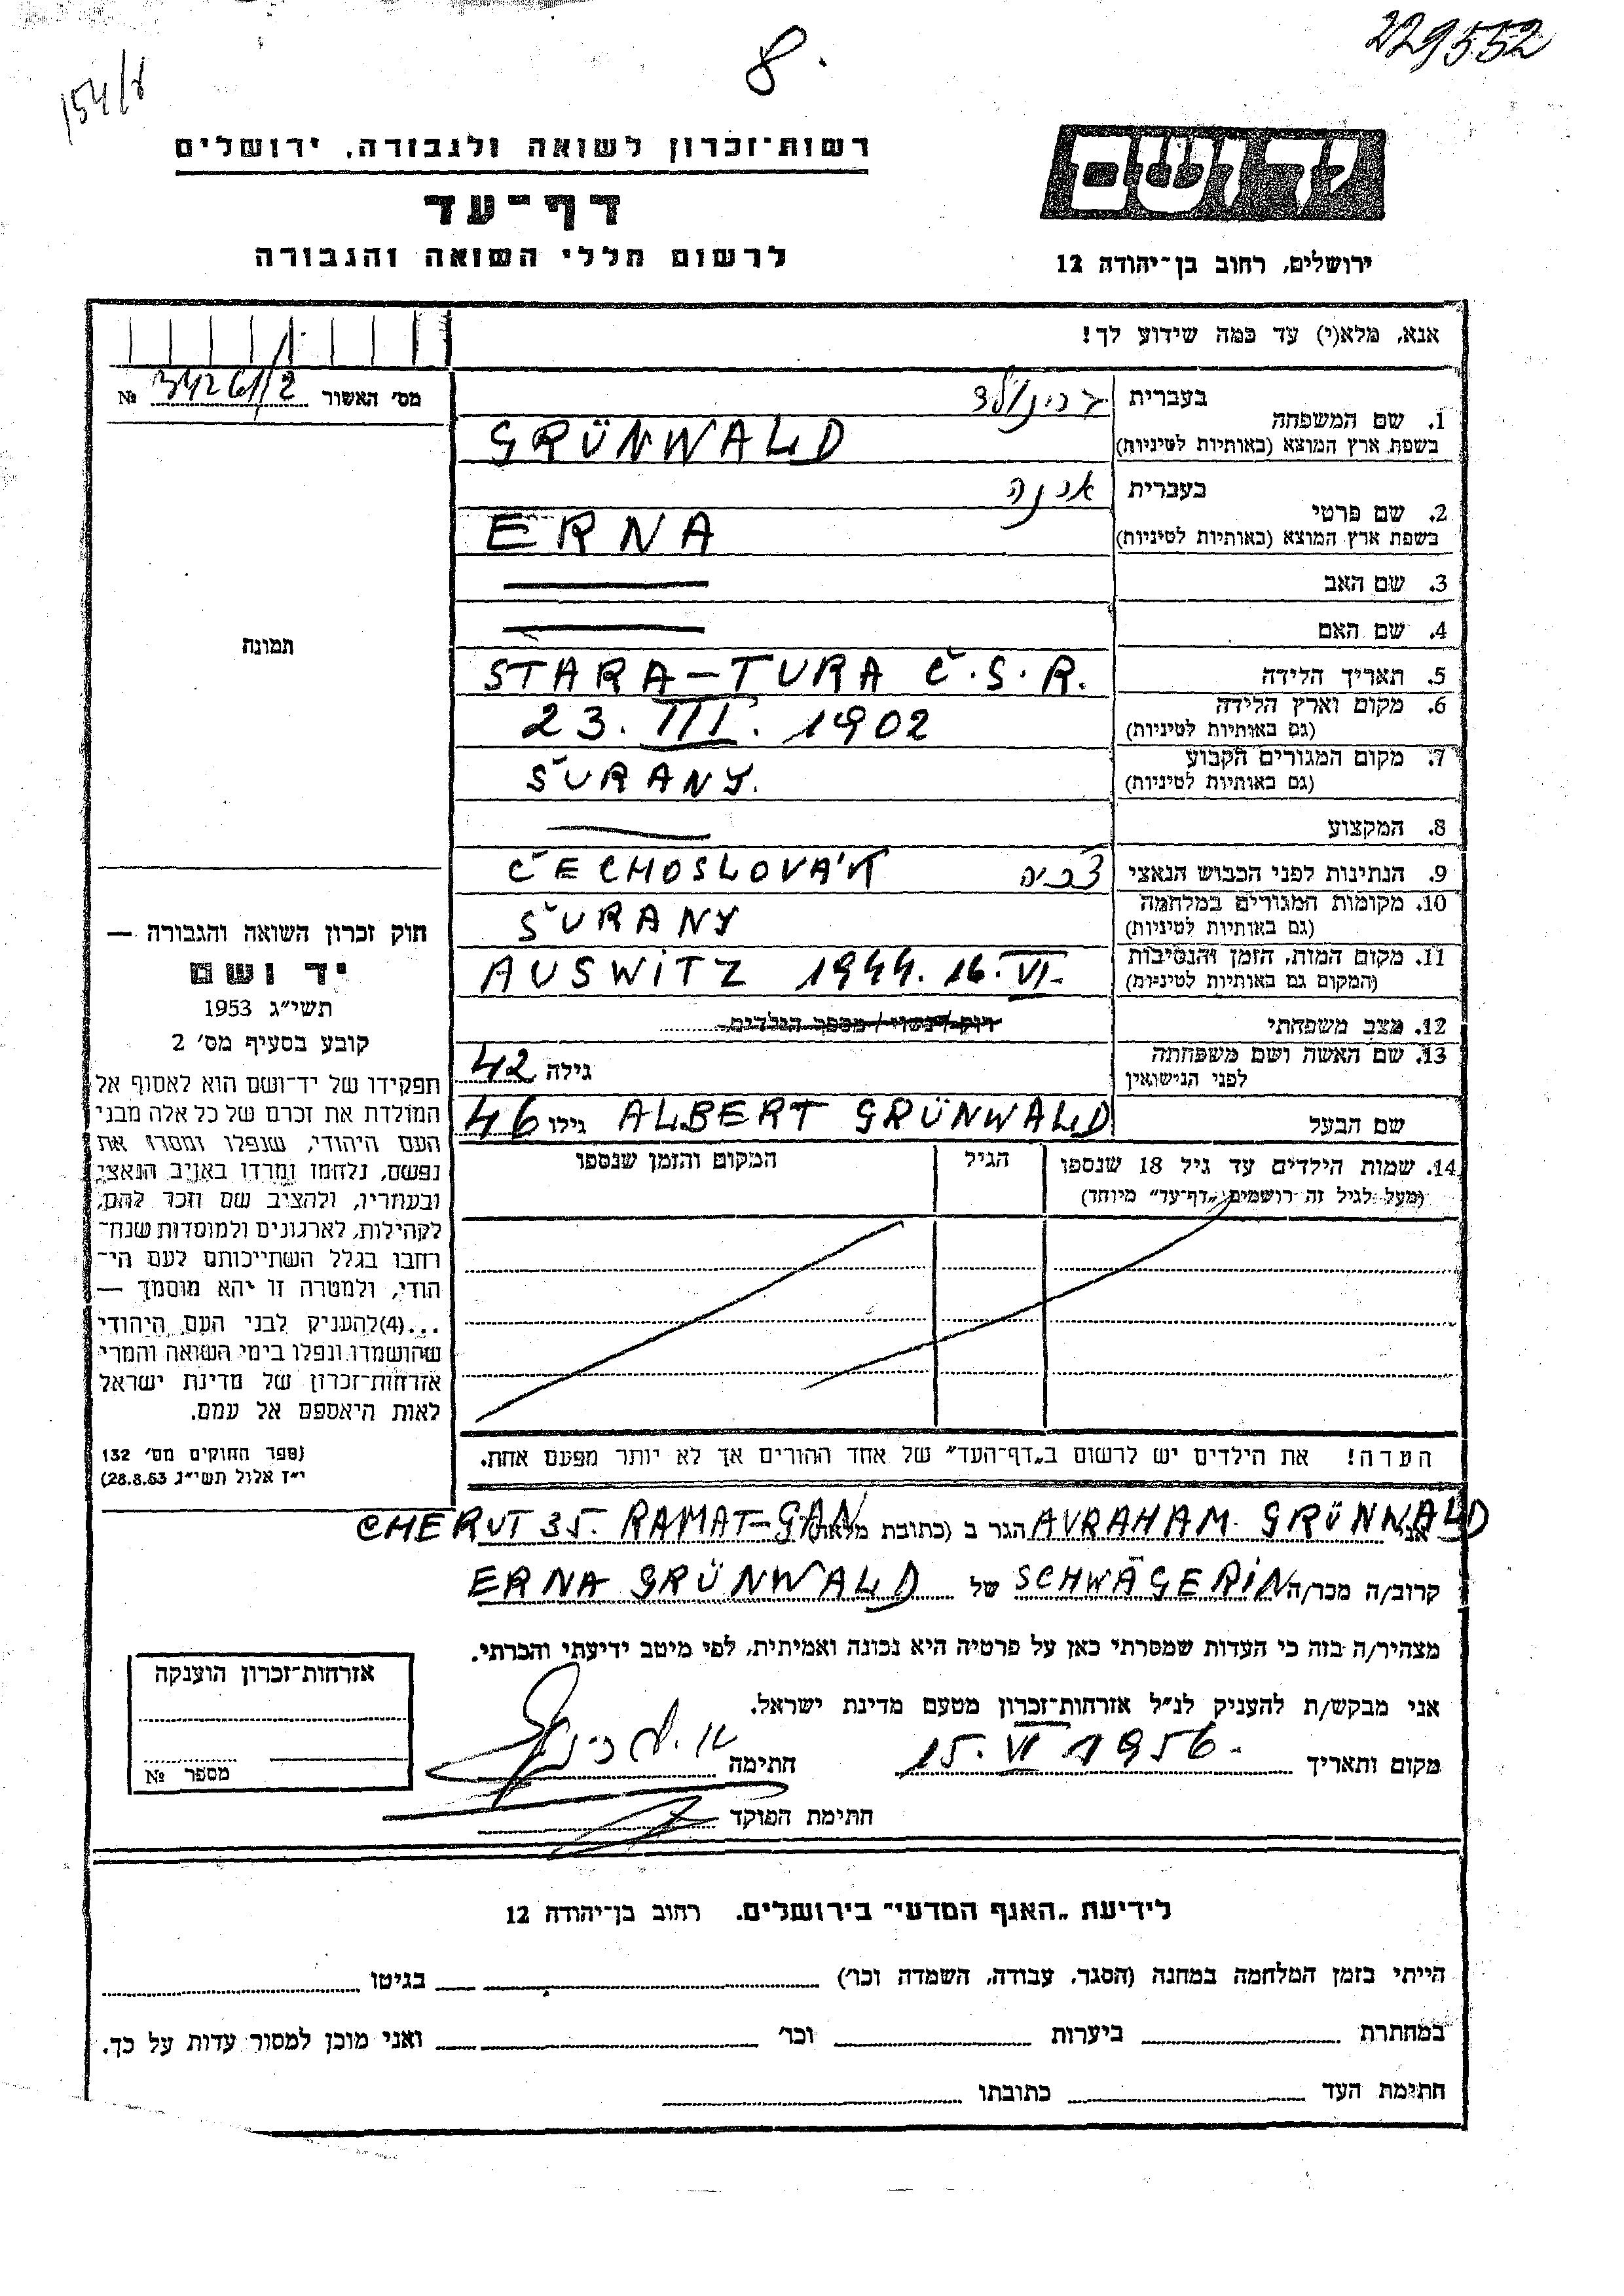 229552
8.
154/8
רשות־זכרון לשואה ולגבורה, ירושלים
דף־עד
לרשום חללי השואה והגבורה
יד ושם
ירושלים, רחוב בן־יהודה 12
אנא, מלא(י) עד כמה שידוע לך!
מס׳ האשור 34261/2 №
1. שם המשפחה בעברית גרינולד
בשפת ארץ המוצא (באותיות לטיניות) GRÜNWALD
2. שם פרטי בעברית
בשפת ארץ המוצא (באותיות לטיניות) ERNA
3. שם האב —
4. שם האם —
5. תאריך הלידה STARA-TURA Č.S.R.
6. מקום וארץ הלידה 23. III. 1902
(גם באותיות לטיניות)
7. מקום המגורים הקבוע ŠURANY.
(גם באותיות לטיניות)
8. המקצוע —
9. הנתינות לפני הכבוש הנאצי ČECHOSLOVÁK
10. מקומות המגורים במלחמה ŠURANY
(גם באותיות לטיניות)
11. מקום המות, הזמן והנסיבות AUSWITZ 1944. 16. VI.
(המקום גם באותיות לטיניות)
12. מצב משפחתי
13. שם האשה ושם משפחתה
לפני הנישואין גילה 42
שם הבעל ALBERT GRÜNWALD גילו 46
14. שמות הילדים עד גיל 18 שנספו הגיל המקום והזמן שנספו
(מעל לגיל זה רושמים „דף־עד״ מיוחד)
הערה! את הילדים יש לרשום ב„דף־העד״ של אחד ההורים אך לא יותר מפעם אחת.
תמונה
חוק זכרון השואה והגבורה —
יד ושם
תשי״ג 1953
קובע בסעיף מס׳ 2
תפקידו של יד־ושם הוא לאסוף אל
המולדת את זכרם של כל אלה מבני
העם היהודי, שנפלו ומסרו את
נפשם, נלחמו ומרדו באויב הנאצי
ובעוזריו, ולהציב שם וזכר להם,
לקהילות, לארגונים ולמוסדות שנח־
רחבו בגלל השתייכותם לעם הי־
הודי, ולמטרה זו יהא מוסמך —
...(4) להעניק לבני העם היהודי
שהושמדו ונפלו בימי השואה והמרי
אזרחות־זכרון של מדינת ישראל
לאות היאספם אל עמם.
(ספר החוקים מס׳ 132
י״ז אלול תשי״ג 28.8.53)
אני AVRAHAM GRÜNWALD הגר ב (כתובת מלאה) CHERUT 35. RAMAT-GAN
קרוב/ה מכר/ה SCHWÄGERIN של ERNA GRÜNWALD
מצהיר/ה בזה כי העדות שמסרתי כאן על פרטיה היא נכונה ואמיתית, לפי מיטב ידיעתי והכרתי.
אני מבקש/ת להעניק לנ״ל אזרחות־זכרון מטעם מדינת ישראל.
מקום ותאריך 15. VI 1956. חתימה
חתימת הפוקד
אזרחות־זכרון הוענקה
מספר №
לידיעת „האגף המדעי״ בירושלים, רחוב בן־יהודה 12
הייתי בזמן המלחמה במחנה (הסגר, עבודה, השמדה וכו׳) בגיטו
במחתרת ביערות וכו׳ ואני מוכן למסור עדות על כך.
חתימת העד כתובתו